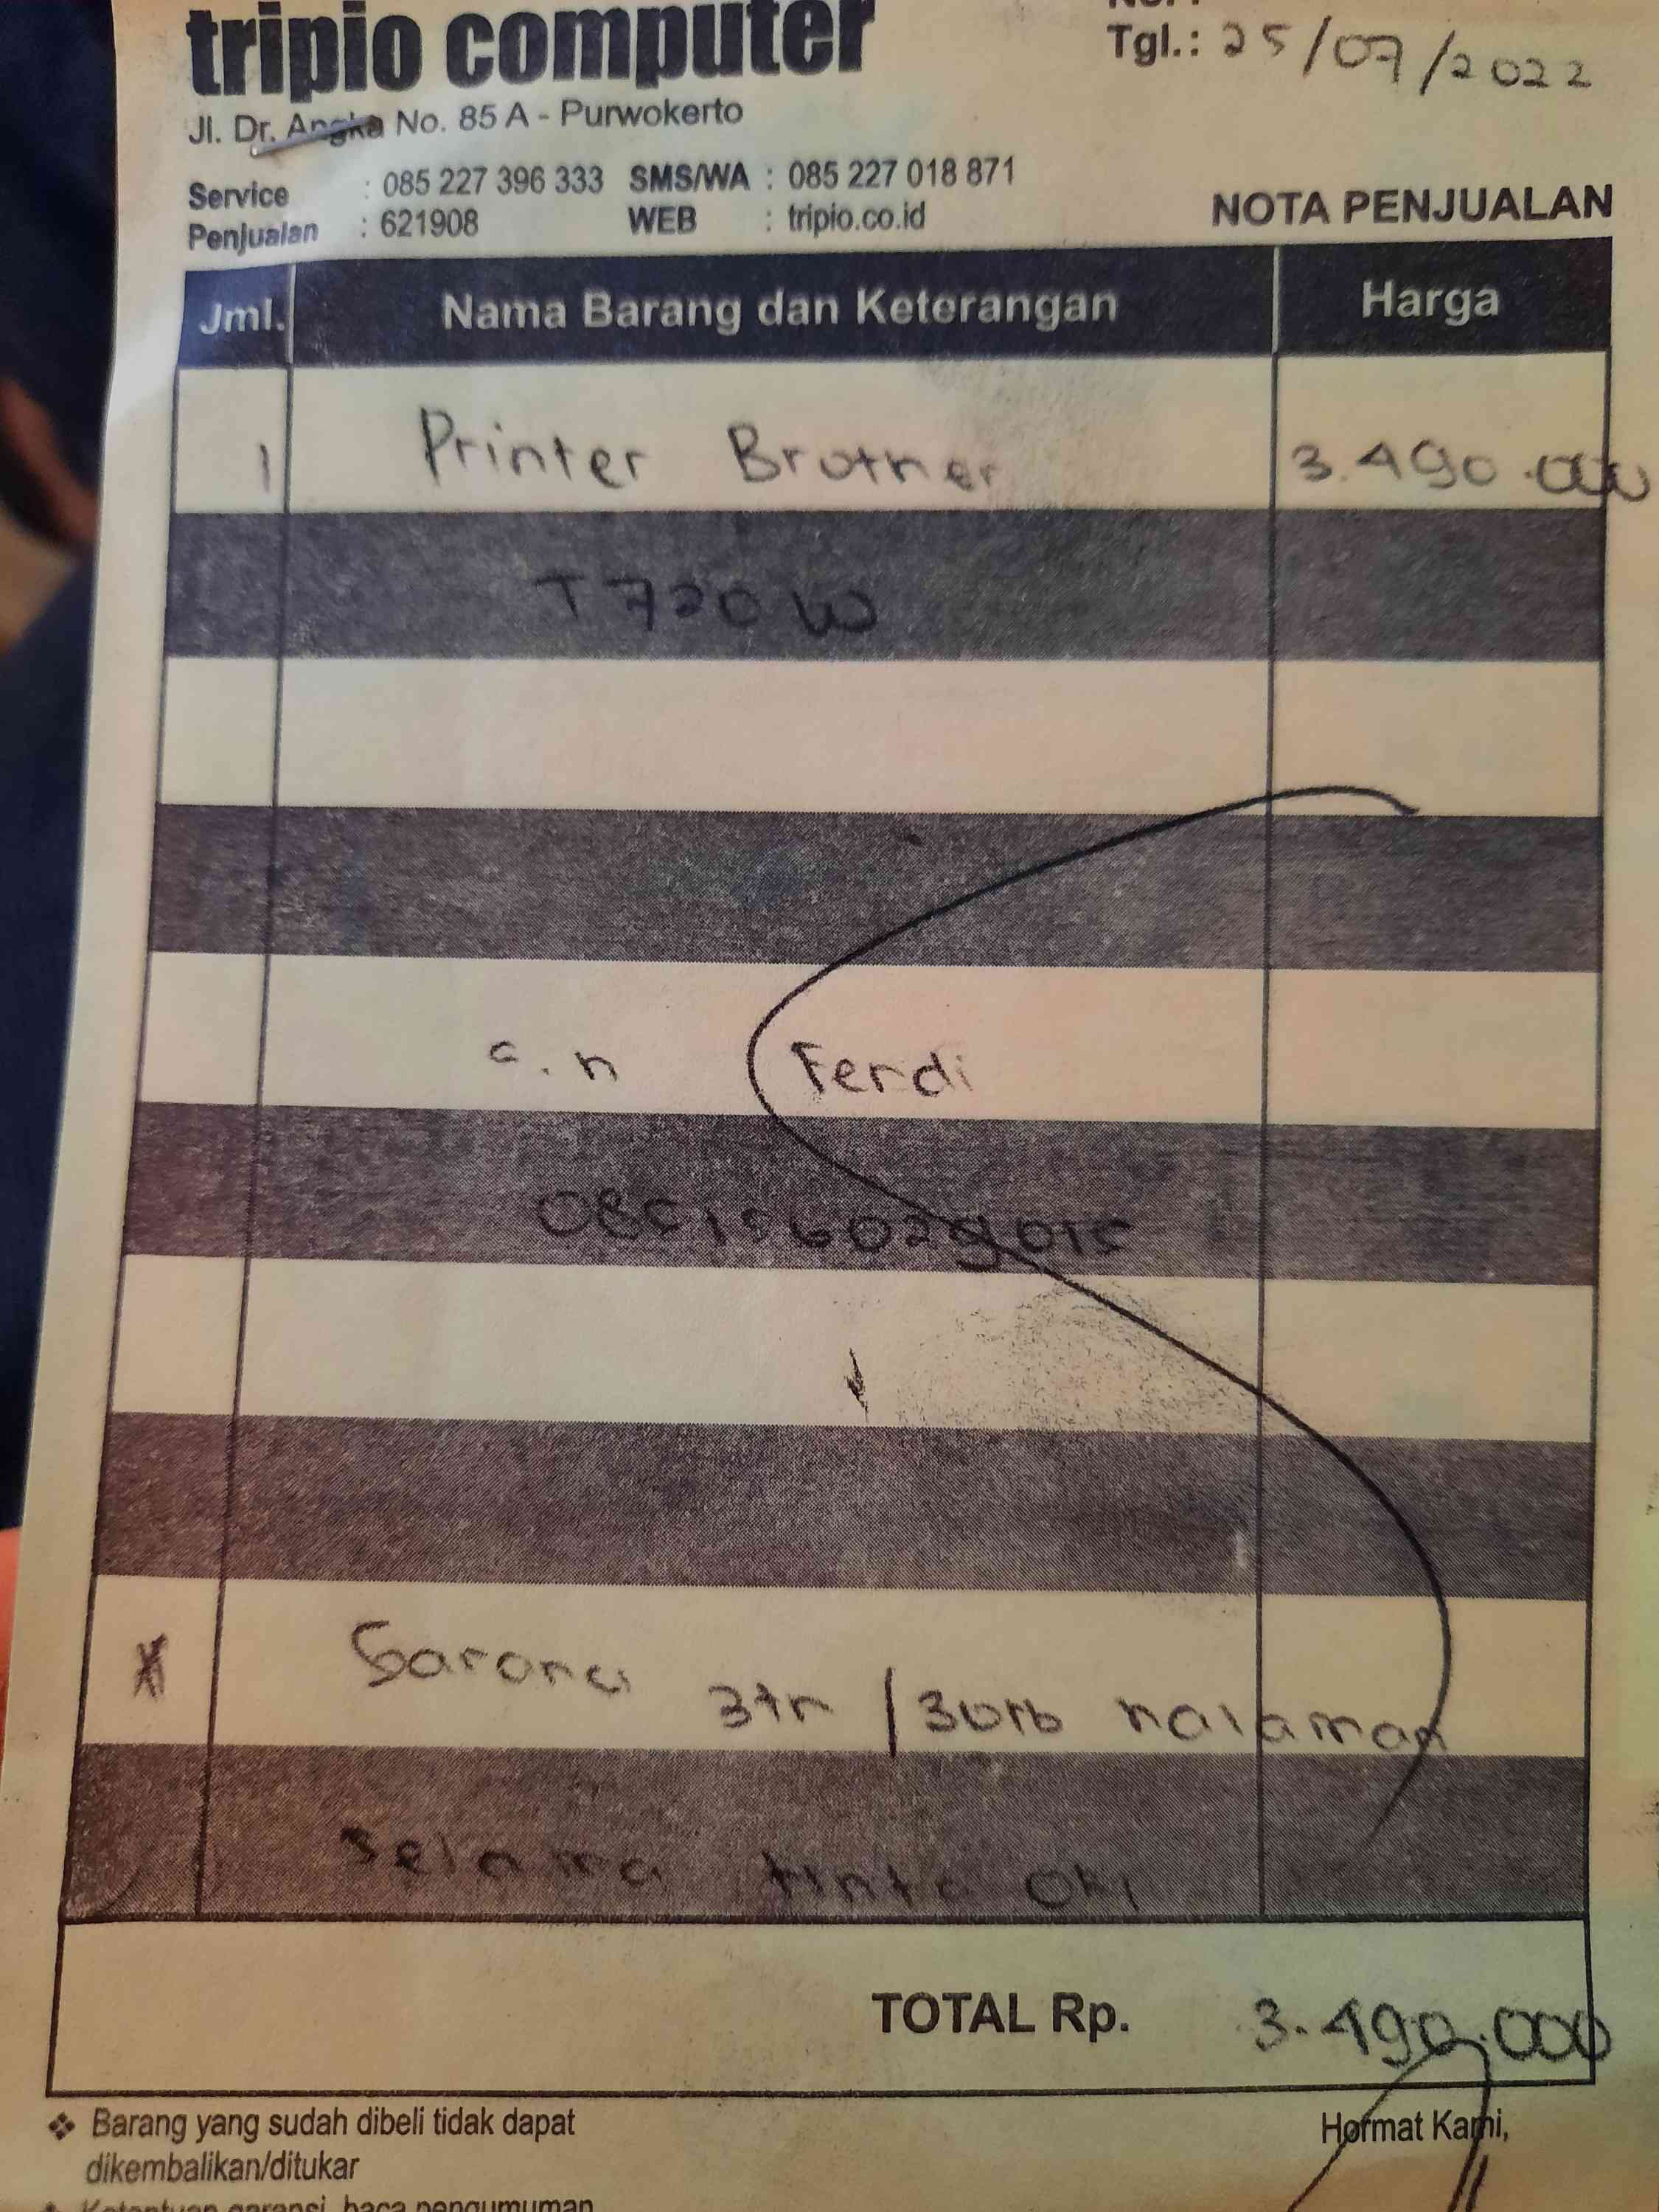 tripio computer
Tgl.: 25/07/2022
Jl. Dr. Angka No. 85 A - Purwokerto
Service : 085 227 396 333 SMS/WA : 085 227 018 871
Penjualan : 621908 WEB : tripio.co.id
NOTA PENJUALAN
Jml. Nama Barang dan Keterangan Harga
1 Printer Brother 3.490.000
T720W
a.n Ferdi
Garansi 3th / 30rb halaman
selama tinta ori
TOTAL Rp. 3.490.000
❖ Barang yang sudah dibeli tidak dapat
dikembalikan/ditukar
Hormat Kami,
Ketentuan garansi, baca pengumuman